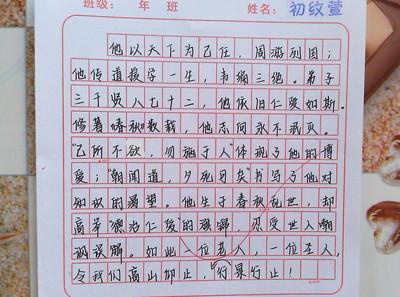 班级： 年 班 姓名： 初纹萱
他以天下为己任，周游列国；
他传道授学一生，韦编三绝。弟子
三千贤人七十二，他依旧仁爱如斯。
修著春秋数载，他志向永不泯灭。
“己所不欲，勿施于人”体现了他的博
爱；“朝闻道，夕死可矣”书写了他对
知识的渴望。他生于春秋乱世，却
高举“德治仁爱”的旗帜，忍受世人嘲
讽误解。如此，一位老人，一位圣人，
令我们高山仰止，景行行止！